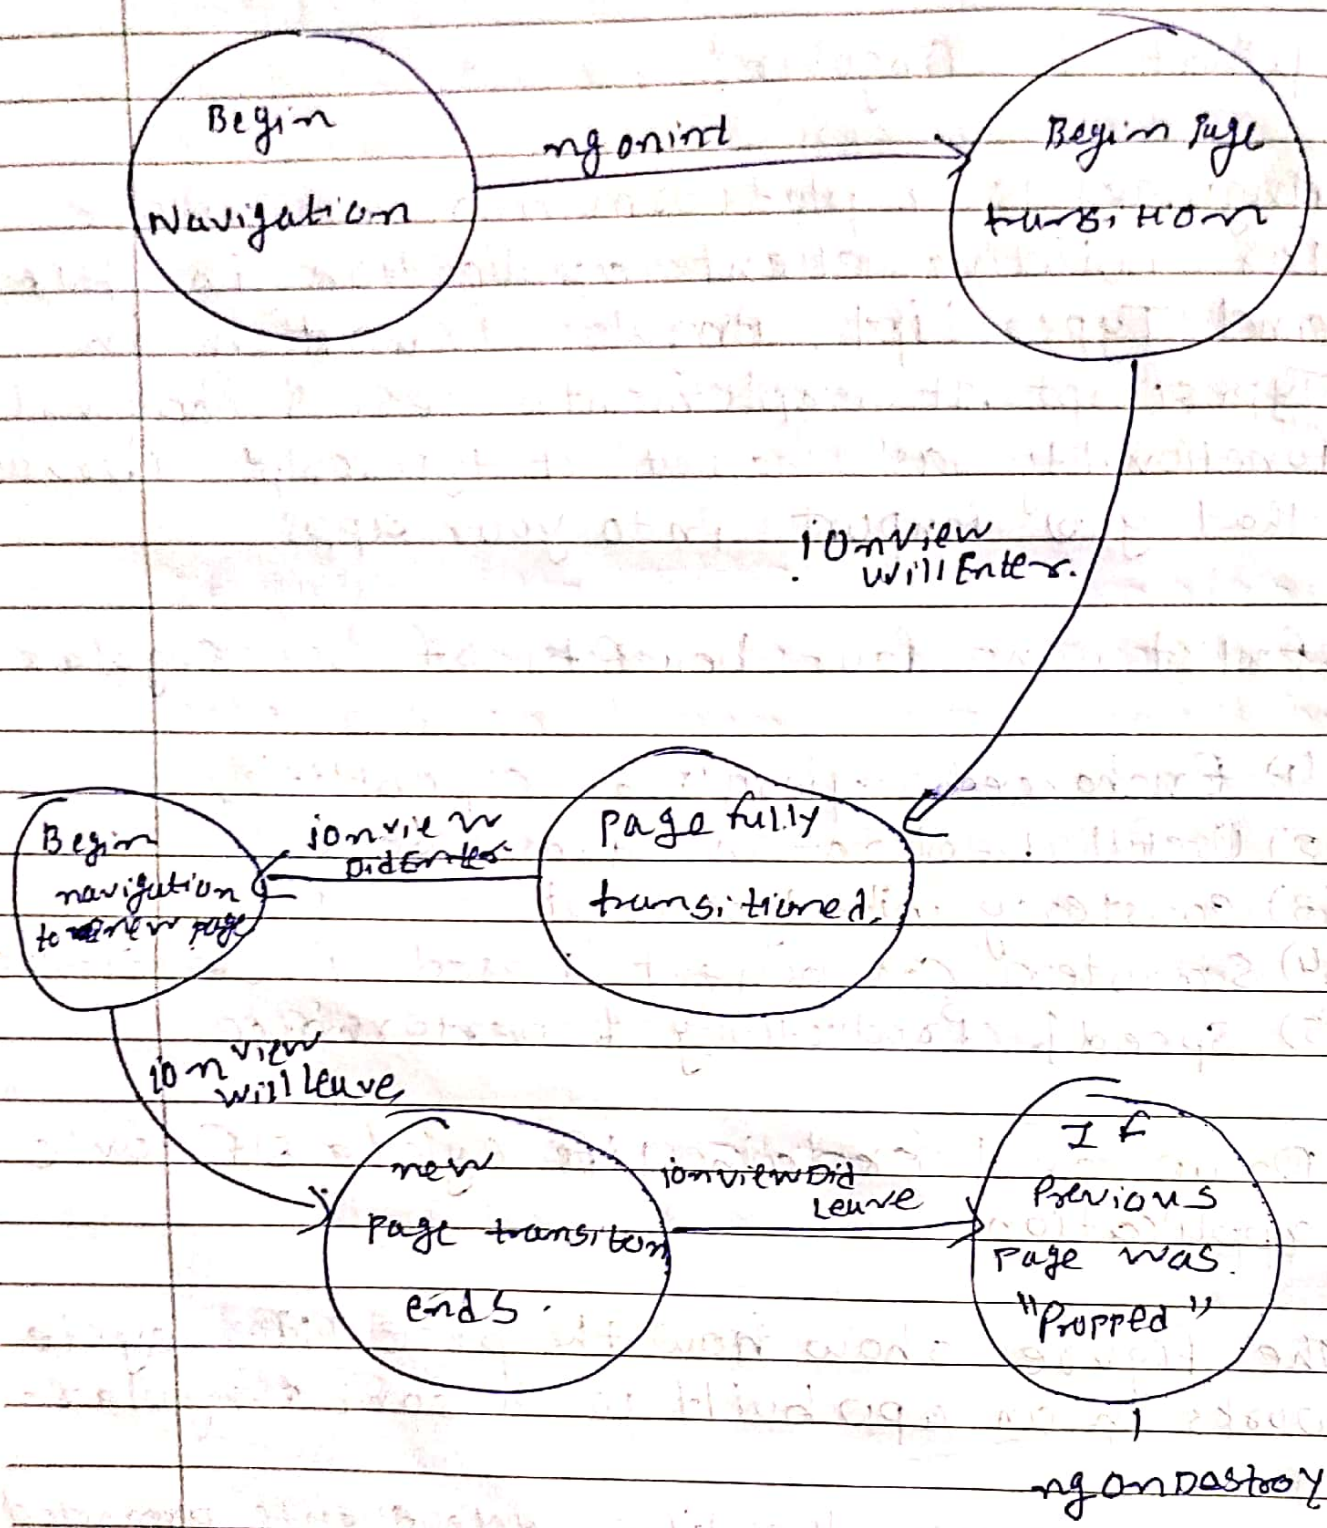 Begin
Navigation
ngonint
Begin Page
transition
ionview
willEnter.
Page fully
transitioned.
ionview
DidEnter
Begin
navigation
to new page
ionview
will leave
new
page transiton
ends.
ionviewDid
Leave
If
Previous
page was.
"Propped"
ngOnDastroy